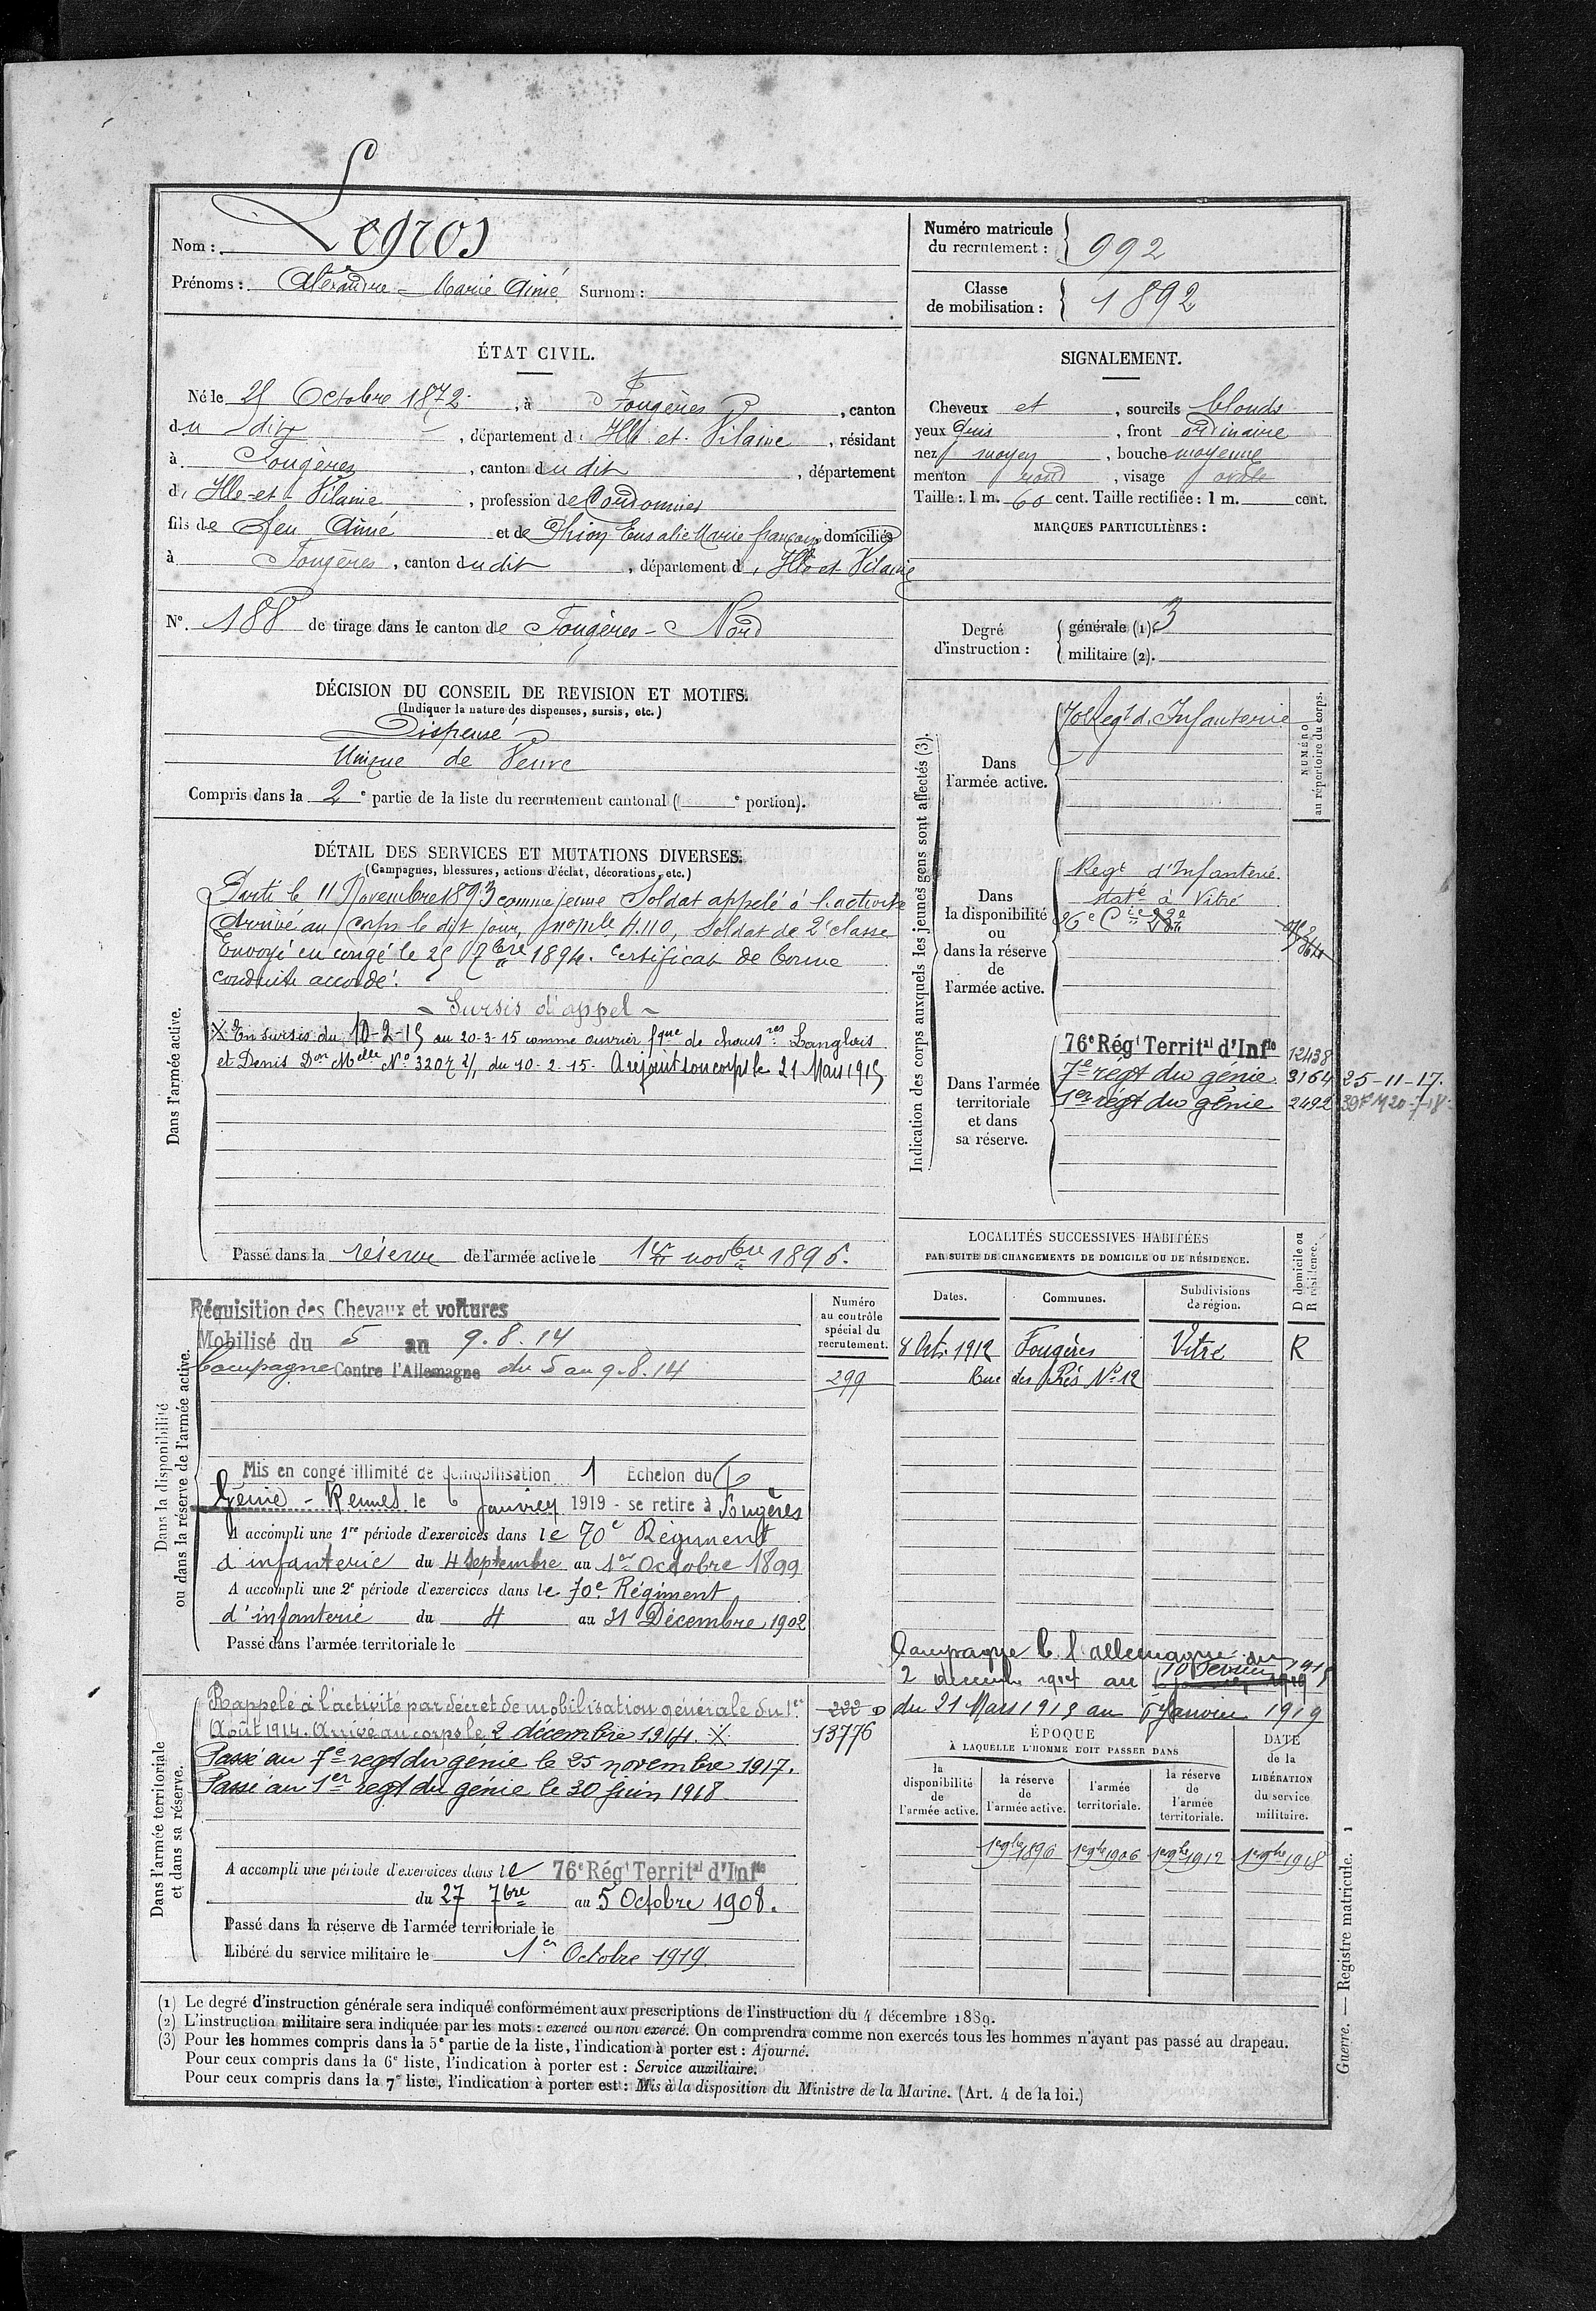 Nom : Legros
Prénoms : Alexandre - Marie Aimé Surnom :
Numéro matricule
du recrutement : 992
Classe
de mobilisation : 1892
ÉTAT CIVIL.
Né le 25 Octobre 1872, à Fougères, canton
du dit, département d'Ille et Vilaine, résidant
à Fougères, canton du dit, département
d'Ille-et-Vilaine, profession de Cordonnier
fils de feu Aimé et de Thion Eusalie Marie françoise domiciliés
à Fougères, canton du dit, département d'Ille et Vilaine
N° 188 de tirage dans le canton de Fougères - Nord
SIGNALEMENT.
Cheveux et, sourcils blonds
yeux Gris, front ordinaire
nez moyen, bouche moyenne
menton rond, visage ovale
Taille : 1 m. 60 cent. Taille rectifiée : 1 m. cent.
MARQUES PARTICULIÈRES :
Degré
d'instruction :
générale (1). 3
militaire (2).
DÉCISION DU CONSEIL DE REVISION ET MOTIFS.
(Indiquer la nature des dispenses, sursis, etc.)
Dispensé
Unique de Veuve
Compris dans la 2e partie de la liste du recrutement cantonal ( e portion).
DÉTAIL DES SERVICES ET MUTATIONS DIVERSES.
(Campagnes, blessures, actions d'éclat, décorations, etc.)
Dans l'armée active.
Parti le 11 Novembre 1893 comme jeune Soldat appelé à l'activité
Arrivé au corps le dit jour, nro mle 4.110, Soldat de 2e classe
Envoyé en congé le 25 7bre 1894. Certificat de bonne
conduite accordé.
- Sursis d'appel -
X En sursis du 10-2-15 au 20-3-15 comme ouvrier fque de chausres Langlois
et Denis Don Melle No 3207 2/, du 10-2-15. A rejoint son corps le 21 Mars 1915
Passé dans la réserve de l'armée active le 1er novbre 1896.
Indication des corps auxquels les jeunes gens sont affectés (3).
NUMÉRO
au répertoire du corps.
Dans
l'armée active.
70e Regt d'Infanterie
Dans
la disponibilité
ou
dans la réserve
de
l'armée active.
Regt d'Infanterie
staté à Vitré
26e Cie
Dans l'armée
territoriale
et dans
sa réserve.
76e Régt Territal d'Infie 12438
7e régt du génie 3164 25-11-17.
1er régt du génie 2492
LOCALITÉS SUCCESSIVES HABITÉES
PAR SUITE DE CHANGEMENTS DE DOMICILE OU DE RÉSIDENCE.
Dates. Communes. Subdivisions
de région.
D domicile ou
R résidence.
8 Oct. 1912 Fougères Vitré R
Rue des Prés No 12
Dans la disponibilité
ou dans la réserve de l'armée active.
Numéro
au contrôle
spécial du
recrutement.
299
Réquisition des Chevaux et voitures
Mobilisé du 5 au 9.8.14
Campagne Contre l'Allemagne du 5 au 9.8.14
Mis en congé illimité de démobilisation 1 Echelon du
Génie - Rennes le 6 Janvier 1919 - se retire à Fougères
A accompli une 1re période d'exercices dans le 70e Régiment
d'infanterie du 4 Septembre au 1er Octobre 1899
A accompli une 2e période d'exercices dans le 70e Régiment
d'infanterie du 4 au 31 Décembre 1902
Passé dans l'armée territoriale le
Campagne C. l'allemagne du
2 décembre 1914 au 10 Février 1915
du 21 Mars 1915 au 6 Janvier 1919
Dans l'armée territoriale
et dans sa réserve.
Rappelé à l'activité par décret de mobilisation générale du 1er
Août 1914. Arrivé au corps le 2 décembre 1914. X
Passé au 7e regt du génie le 25 novembre 1917.
Passé au 1er regt du génie le 30 juin 1918
222 D
13776
A accompli une période d'exercices dans le 76e Régt Territal d'Infie
du 27 7bre au 5 Octobre 1908.
Passé dans la réserve de l'armée territoriale le
Libéré du service militaire le 1er Octobre 1919.
ÉPOQUE
À LAQUELLE L'HOMME DOIT PASSER DANS
la
disponibilité
de
l'armée active.
la réserve
de
l'armée active.
l'armée
territoriale.
la réserve
de
l'armée
territoriale.
DATE
de la
LIBÉRATION
du service
militaire.
1er 9bre 1896 1er 9bre 1906 1er 9bre 1912 1er 9bre 1918
(1) Le degré d'instruction générale sera indiqué conformément aux prescriptions de l'instruction du 4 décembre 1889.
(2) L'instruction militaire sera indiquée par les mots : exercé ou non exercé. On comprendra comme non exercés tous les hommes n'ayant pas passé au drapeau.
(3) Pour les hommes compris dans la 5e partie de la liste, l'indication à porter est : Ajourné.
Pour ceux compris dans la 6e liste, l'indication à porter est : Service auxiliaire.
Pour ceux compris dans la 7e liste, l'indication à porter est : Mis à la disposition du Ministre de la Marine. (Art. 4 de la loi.)
Guerre. — Registre matricule. 1